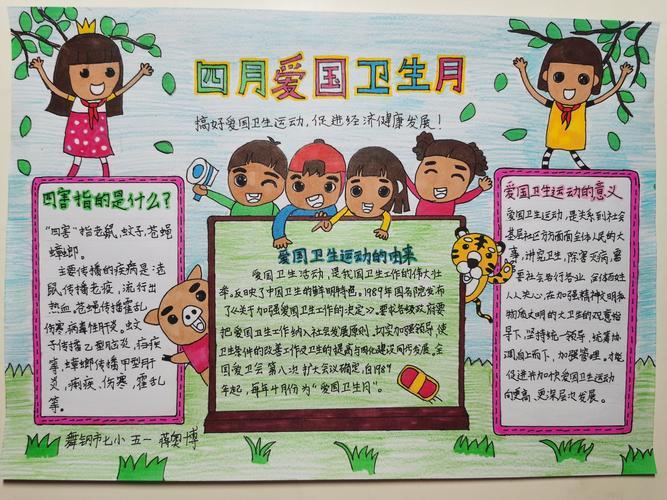 四月爱国卫生月
搞好爱国卫生运动，促进经济健康发展！
四害指的是什么？
"四害"指老鼠,蚊子,苍蝇
蟑螂。
主要传播的疾病是:老
鼠传播老疫,流行出
热血,苍蝇传播霍乱
伤寒,病毒性肝炎。蚊
子传播乙型脑炎,
等,蟑螂传播甲型肝
炎,痢疾,伤寒,霍乱
等。
爱国卫生运动的由来
爱国卫生活动,是我国卫生工作的伟大壮
举。反映了中国卫生的鲜明特色。1989年国务院发布
了《关于加强爱国卫生工作的决定》。要求各级政府要
把爱国卫生工作纳入社会发展原则,切实加强领导,使
卫生条件的改善工作及卫生的提高与四化建设同步发展,全
国爱卫会第八次扩大会议确定,自1989
年起,每年4月份为"爱国卫生月"。
爱国卫生运动的意义
爱国卫生运动,是关系到社会
基层社区方方面面全体人民的大
事,讲究卫生,除害灭病,需
要社会各行各业,全体百姓
人人关心,在加强精神文明和
物质文明的大卫生的观意指
导下,坚持统一领导,统筹协
调,自上而下,加强管理。才能
促进并加快爱国卫生运动
向更高、更深层次发展。
舞钢市七小 五一 蒋奥博